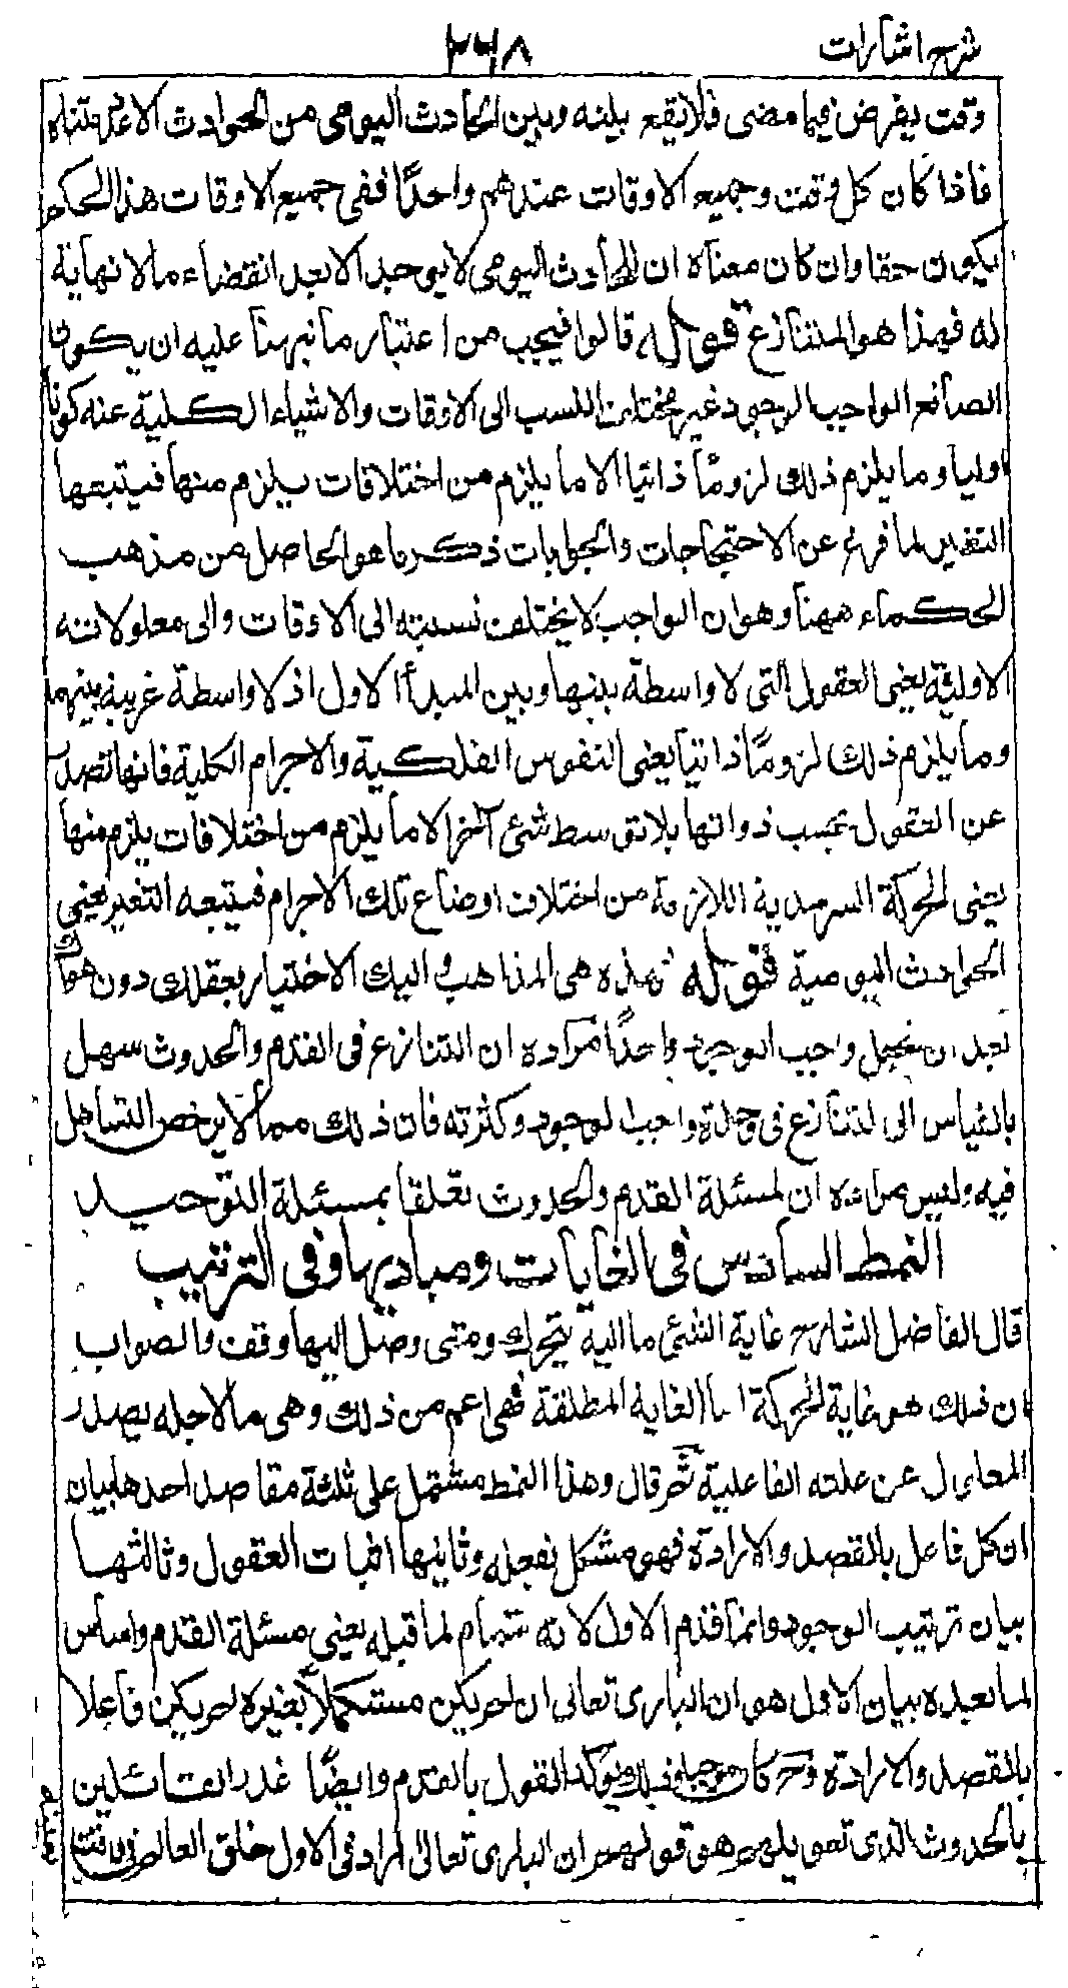 شرح اشارات
٢٦٨
وقت يفرض فيما مضى فلا يقع بينه وبين الحادث اليومى من الحوادث الا غير متناه
فاذا كان كل وقت وجميع الاوقات عندهم واحدًا ففى جميع الاوقات هذا الحكم
يكون حقا وان كان معناه ان الحادث اليومى لا يوجد الا بعد انقضاء ما لا نهاية
له فهذا هو المتنازع قوله قالوا فيجب من اعتبار ما نبهنا عليه ان يكون
الصانع الواجب الوجود غير مختلف النسب الى الاوقات والاشياء الكلية عنه كونا
اوليا وما يلزم ذلك لزومًا ذاتيا الا ما يلزم من اختلافات يلزم منها فيتبعها
التغير لما فرغ عن الاحتجاجات والجوابات ذكر ما هو الحاصل من مذهب
الحكماء ههنا وهو ان الواجب لا يختلف نسبته الى الاوقات والى معلولاته
الاولية يعنى العقول التى لا واسطة بينها وبين المبدأ الاول اذ لا واسطة غريبة بينهما
وما يلزم ذلك لزومًا ذاتيا يعنى النفوس الفلكية والاجرام الكلية فانها تصدر
عن العقول بحسب ذواتها بلا توسط شئ آخر الا ما يلزم من اختلافات يلزم منها
يعنى الحركة السرمدية اللازمة من اختلاف اوضاع تلك الاجرام فيتبعه التغير يعنى
الحوادث اليومية قوله فهذه هى المذاهب واليك الاختيار بعقلك دون هواك
بعد ان تجعل واجب الوجود واحدًا مراده ان التنازع فى القدم والحدوث سهل
بالقياس الى التنازع فى وحدة واجب الوجود وكثرته فان ذلك مما لا يرخص التساهل
فيه وليس مراده ان لمسئلة القدم والحدوث تعلقا بمسئلة التوحيد
النمط السادس فى الغايات ومباديها وفى الترتيب
قال الفاضل الشارح غاية الشئ ما اليه يتحرك ومتى وصل اليها وقف والصواب
ان ذلك هو غاية الحركة اما الغاية المطلقة فهى اعم من ذلك وهى ما لاجله يصدر
المعلول عن علته الفاعلية ثم قال وهذا النمط مشتمل على ثلثة مقاصد احدها بيان
ان كل فاعل بالقصد والارادة فهو مستكمل بفعله وثانيها اثبات العقول وثالثها
بيان ترتيب الوجود وانما قدم الاول لانه تمام لما قبله يعنى مسئلة القدم واساس
لما بعده بيان الاول هو ان البارى تعالى ان لم يكن مستكملاً بغيره لم يكن فاعلا
بالقصد والارادة وحـ كان موجبا وذلك يؤكد القول بالقدم وايضًا عذر القائلين
بالحدوث الذى تعويلهم هو قولهم ان البارى تعالى اراد فى الاول خلق العالم